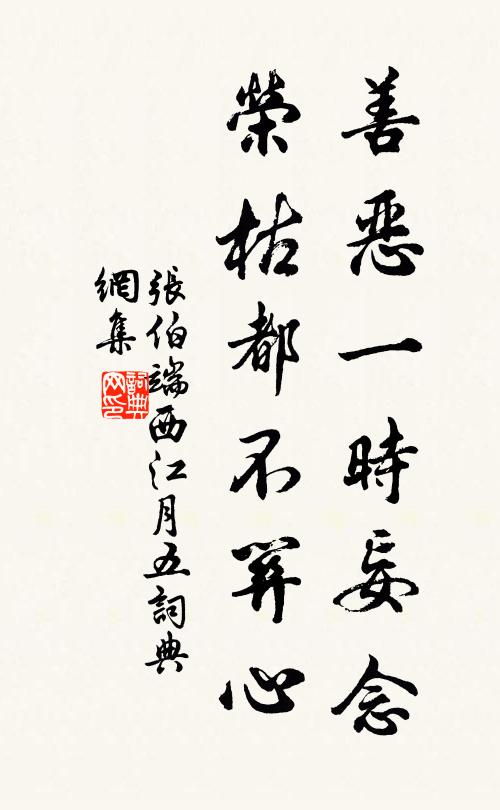 善惡一時妄念
榮枯都不關心
張伯端西江月五詞典
網集
詞典
网印